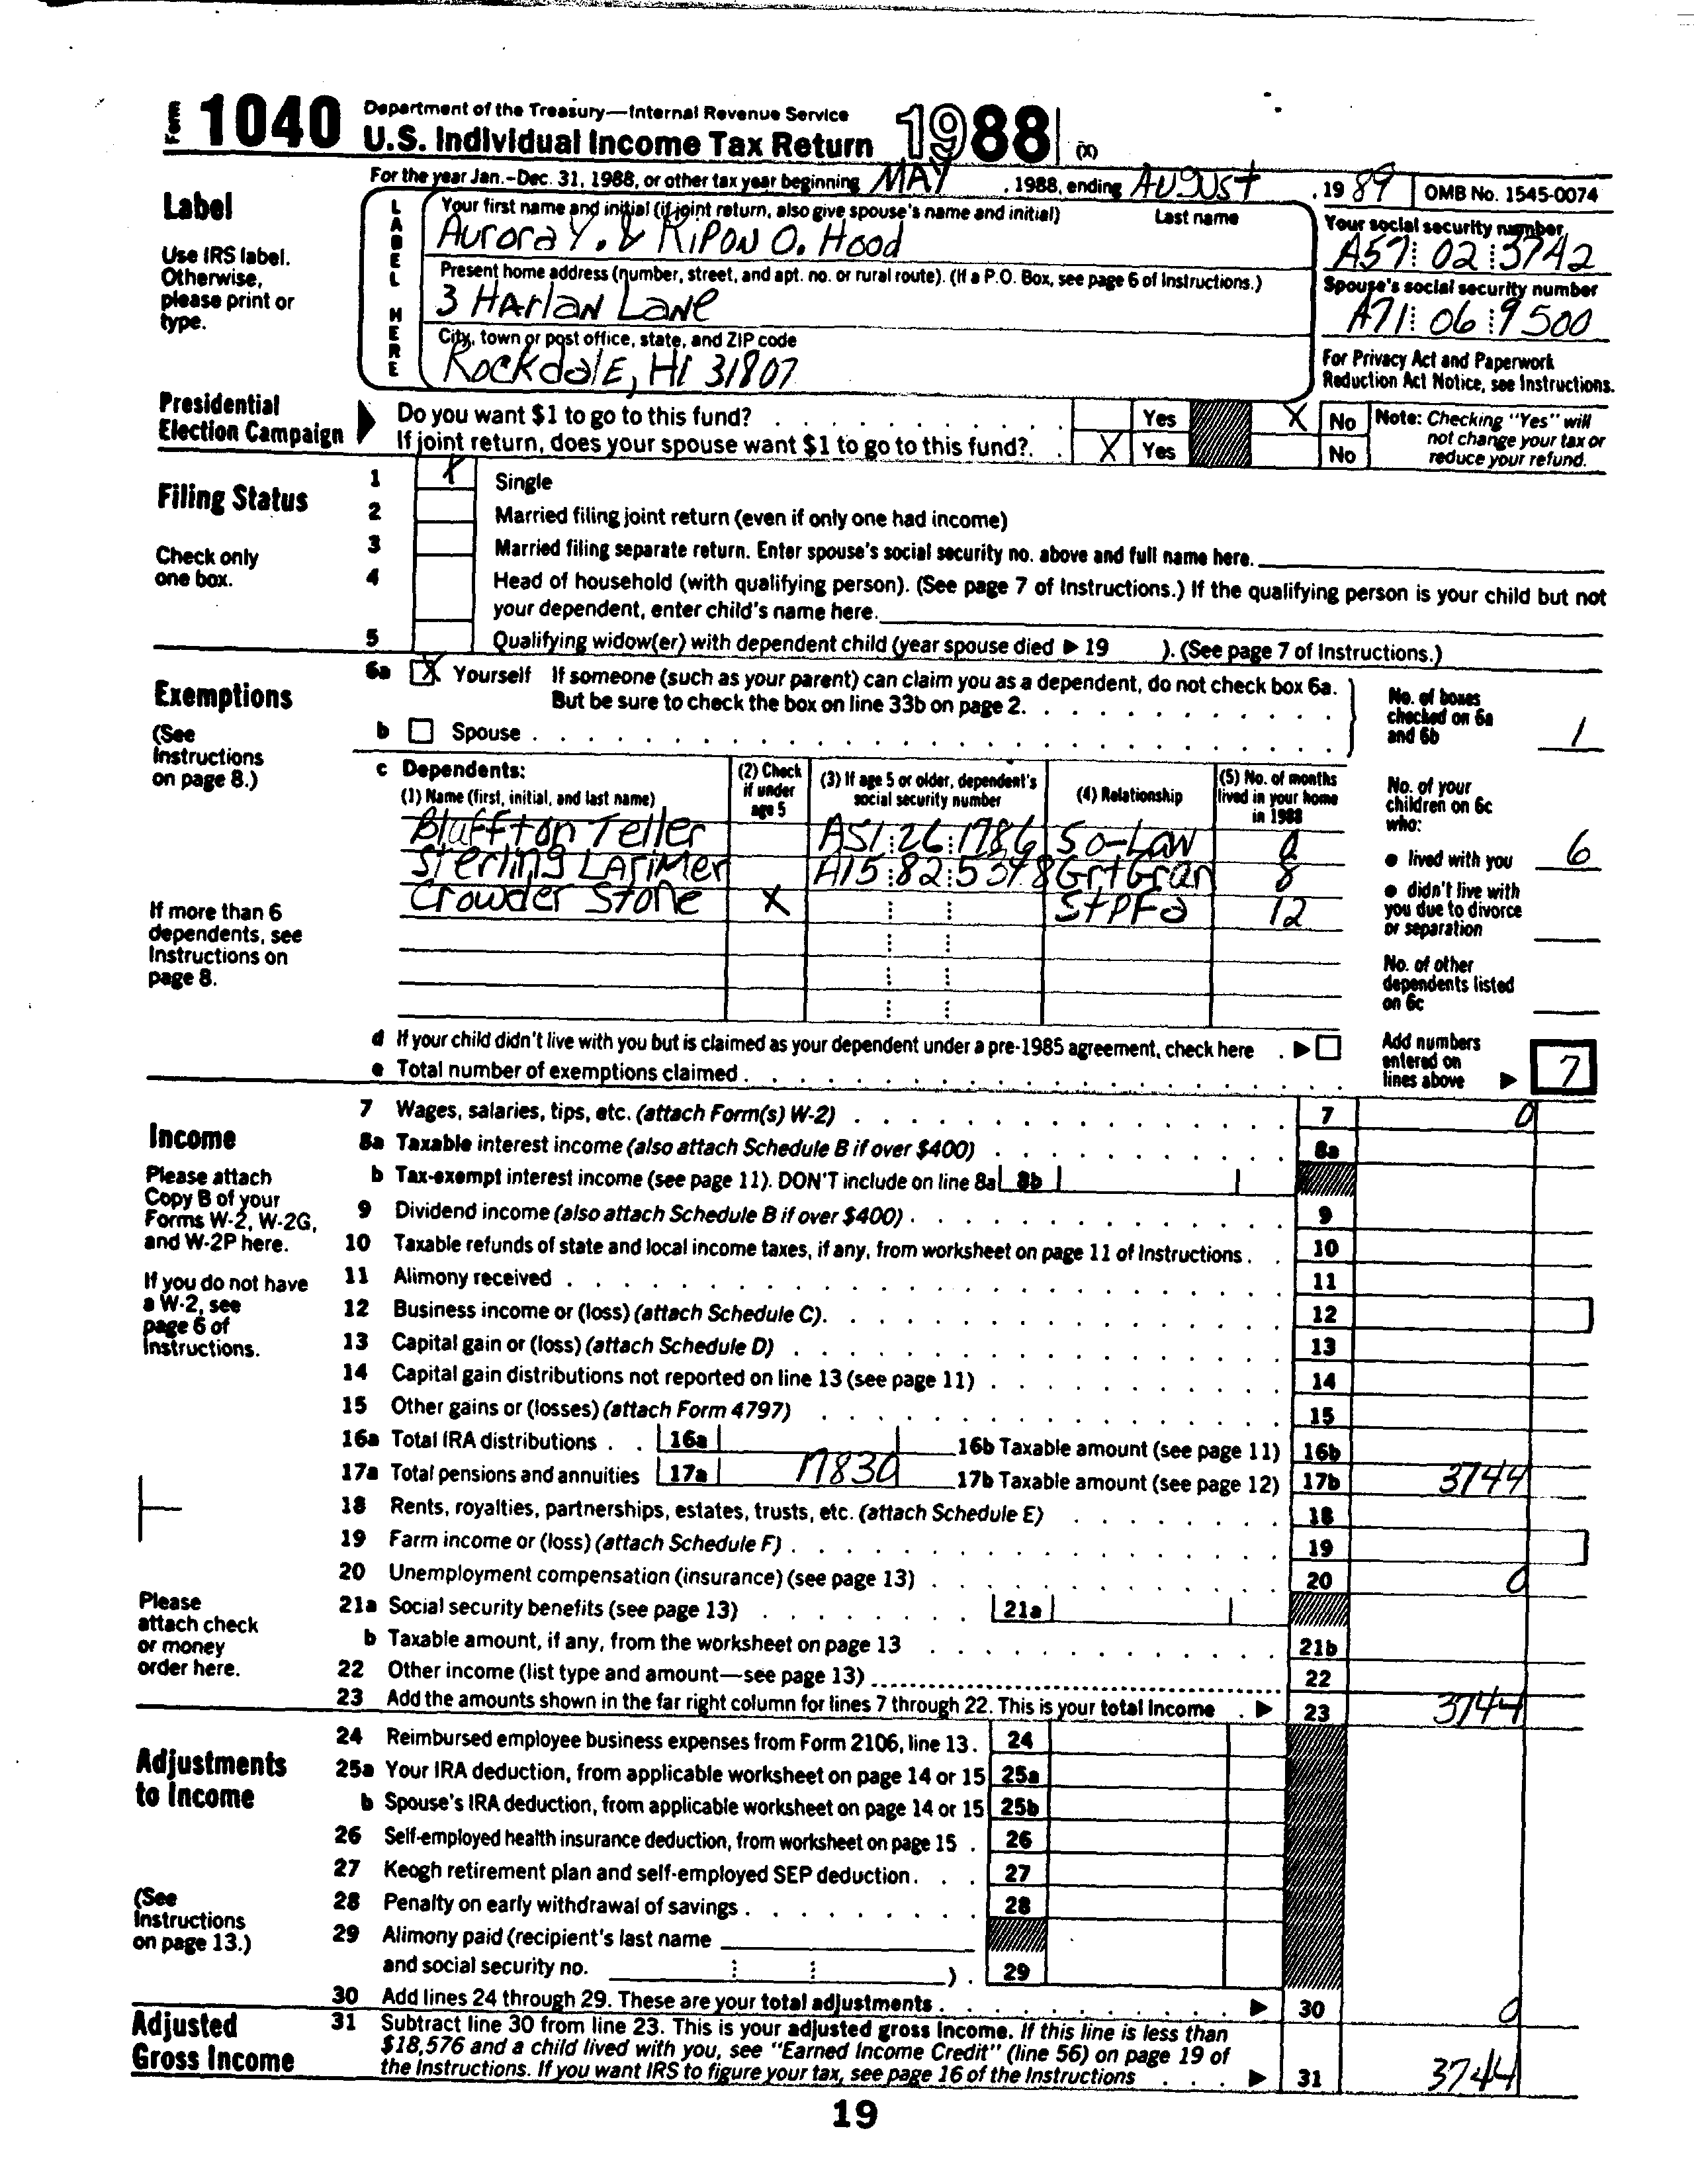 Form 1040 Department of the Treasury—Internal Revenue Service
U.S. Individual Income Tax Return 1988 (X)
For the year Jan.–Dec. 31, 1988, or other tax year beginning MAY , 1988, ending AUGUST , 19 89 OMB No. 1545-0074
Label
Use IRS label.
Otherwise,
please print or
type.
LABEL HERE
Your first name and initial (if joint return, also give spouse's name and initial) Last name
Aurora Y. & RIPON O. Hood
Your social security number
A57 02 3742
Present home address (number, street, and apt. no. or rural route). (If a P.O. Box, see page 6 of Instructions.)
3 HArlaN LaNE
Spouse's social security number
A71 06 9500
City, town or post office, state, and ZIP code
RockdalE, HI 31807
For Privacy Act and Paperwork
Reduction Act Notice, see Instructions.
Presidential
Election Campaign
Do you want $1 to go to this fund? Yes X No
If joint return, does your spouse want $1 to go to this fund? X Yes No
Note: Checking "Yes" will
not change your tax or
reduce your refund.
Filing Status
Check only
one box.
1 X Single
2 Married filing joint return (even if only one had income)
3 Married filing separate return. Enter spouse's social security no. above and full name here.
4 Head of household (with qualifying person). (See page 7 of Instructions.) If the qualifying person is your child but not
your dependent, enter child's name here.
5 Qualifying widow(er) with dependent child (year spouse died ▶ 19 ). (See page 7 of Instructions.)
Exemptions
(See
Instructions
on page 8.)
6a X Yourself If someone (such as your parent) can claim you as a dependent, do not check box 6a.
But be sure to check the box on line 33b on page 2.
b Spouse
No. of boxes
checked on 6a
and 6b 1
c Dependents:
(1) Name (first, initial, and last name)
(2) Check
if under
age 5
(3) If age 5 or older, dependent's
social security number
(4) Relationship
(5) No. of months
lived in your home
in 1988
Bluffton Teller A51 26 1786 So-Law
Sterling LAriMer A15 82 5398 GrtGran 8
Crowder Stone X StPFa 12
No. of your
children on 6c
who:
● lived with you 6
● didn't live with
you due to divorce
or separation
No. of other
dependents listed
on 6c
If more than 6
dependents, see
Instructions on
page 8.
d If your child didn't live with you but is claimed as your dependent under a pre-1985 agreement, check here ▶
e Total number of exemptions claimed
Add numbers
entered on
lines above ▶ 7
Income
Please attach
Copy B of your
Forms W-2, W-2G,
and W-2P here.
If you do not have
a W-2, see
page 6 of
Instructions.
7 Wages, salaries, tips, etc. (attach Form(s) W-2) 7 0
8a Taxable interest income (also attach Schedule B if over $400) 8a
b Tax-exempt interest income (see page 11). DON'T include on line 8a 8b
9 Dividend income (also attach Schedule B if over $400) 9
10 Taxable refunds of state and local income taxes, if any, from worksheet on page 11 of Instructions 10
11 Alimony received 11
12 Business income or (loss) (attach Schedule C). 12
13 Capital gain or (loss) (attach Schedule D) 13
14 Capital gain distributions not reported on line 13 (see page 11) 14
15 Other gains or (losses) (attach Form 4797) 15
16a Total IRA distributions 16a 16b Taxable amount (see page 11) 16b
17a Total pensions and annuities 17a 17830 17b Taxable amount (see page 12) 17b 3744
18 Rents, royalties, partnerships, estates, trusts, etc. (attach Schedule E) 18
19 Farm income or (loss) (attach Schedule F) 19
20 Unemployment compensation (insurance) (see page 13) 20 0
21a Social security benefits (see page 13) 21a
b Taxable amount, if any, from the worksheet on page 13 21b
22 Other income (list type and amount—see page 13) 22
23 Add the amounts shown in the far right column for lines 7 through 22. This is your total income ▶ 23 3744
Please
attach check
or money
order here.
Adjustments
to Income
(See
Instructions
on page 13.)
24 Reimbursed employee business expenses from Form 2106, line 13. 24
25a Your IRA deduction, from applicable worksheet on page 14 or 15 25a
b Spouse's IRA deduction, from applicable worksheet on page 14 or 15 25b
26 Self-employed health insurance deduction, from worksheet on page 15 26
27 Keogh retirement plan and self-employed SEP deduction 27
28 Penalty on early withdrawal of savings 28
29 Alimony paid (recipient's last name
and social security no. ) 29
30 Add lines 24 through 29. These are your total adjustments ▶ 30 0
Adjusted
Gross Income
31 Subtract line 30 from line 23. This is your adjusted gross income. If this line is less than
$18,576 and a child lived with you, see "Earned Income Credit" (line 56) on page 19 of
the Instructions. If you want IRS to figure your tax, see page 16 of the Instructions ▶ 31 3744
19